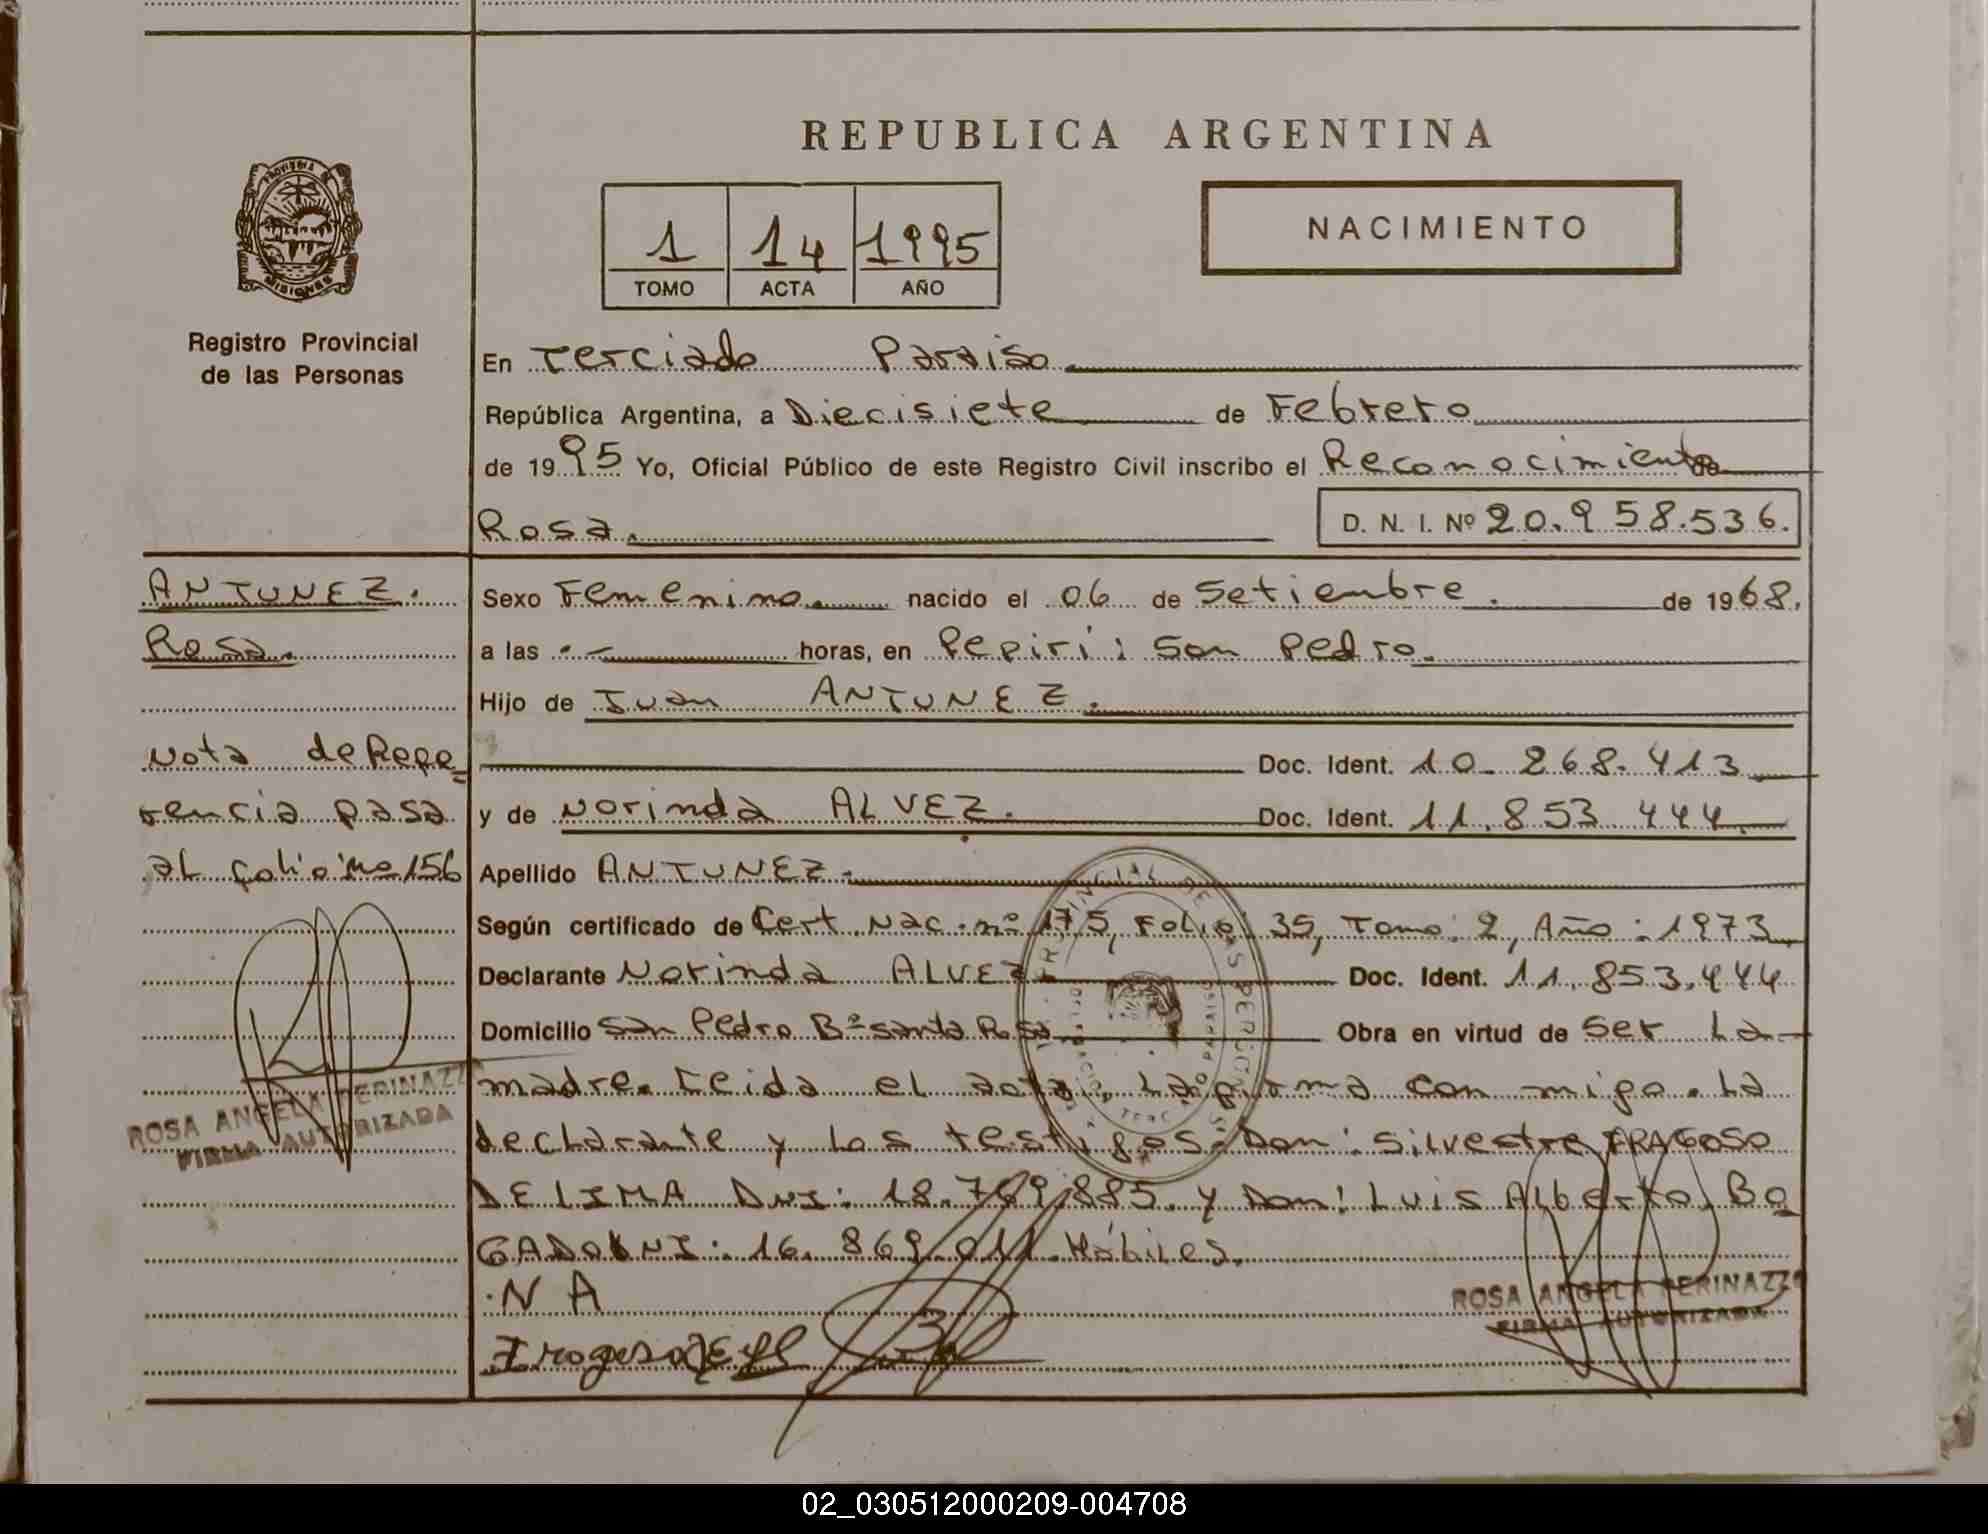 REPUBLICA ARGENTINA
PROVINCIA DE
MISIONES
Registro Provincial
de las Personas
1 14 1995
TOMO ACTA AÑO
NACIMIENTO
En Terciado Paraiso.
República Argentina, a Diecisiete de Febrero
de 1995 Yo, Oficial Público de este Registro Civil inscribo el Reconocimiento de
Rosa. D. N. I. Nº 20.958.536.
ANTUNEZ.
Rosa.
Nota de Refe=
rencia pasa
al folio: nº 156
ROSA ANGELA PERINAZZO
FIRMA AUTORIZADA
Sexo Femenino. nacido el 06 de Setiembre. de 1968.
a las .- horas, en Pepirí: San Pedro.
Hijo de Juan ANTUNEZ.
Doc. Ident. 10.268.413
y de Norinda ALVEZ. Doc. Ident. 11.853.444
Apellido ANTUNEZ.
Según certificado de Cert. Nac. nº 175, Folio: 35, Tomo: 2, Año: 1973
Declarante Norinda ALVEZ Doc. Ident. 11.853.444
Domicilio San Pedro Bº Santa Rosa Obra en virtud de Ser La
madre. Leida el acta, La firma con migo. La
declarante y Los testigos. Don: Silvestre FRAGOSO
DE LIMA DNI: 18.769.885. y Don: Luis Alberto Bo
GADO DNI: 16.869.011. Hábiles.
N A
ROSA ANGELA PERINAZZO
FIRMA AUTORIZADA
02_030512000209-004708